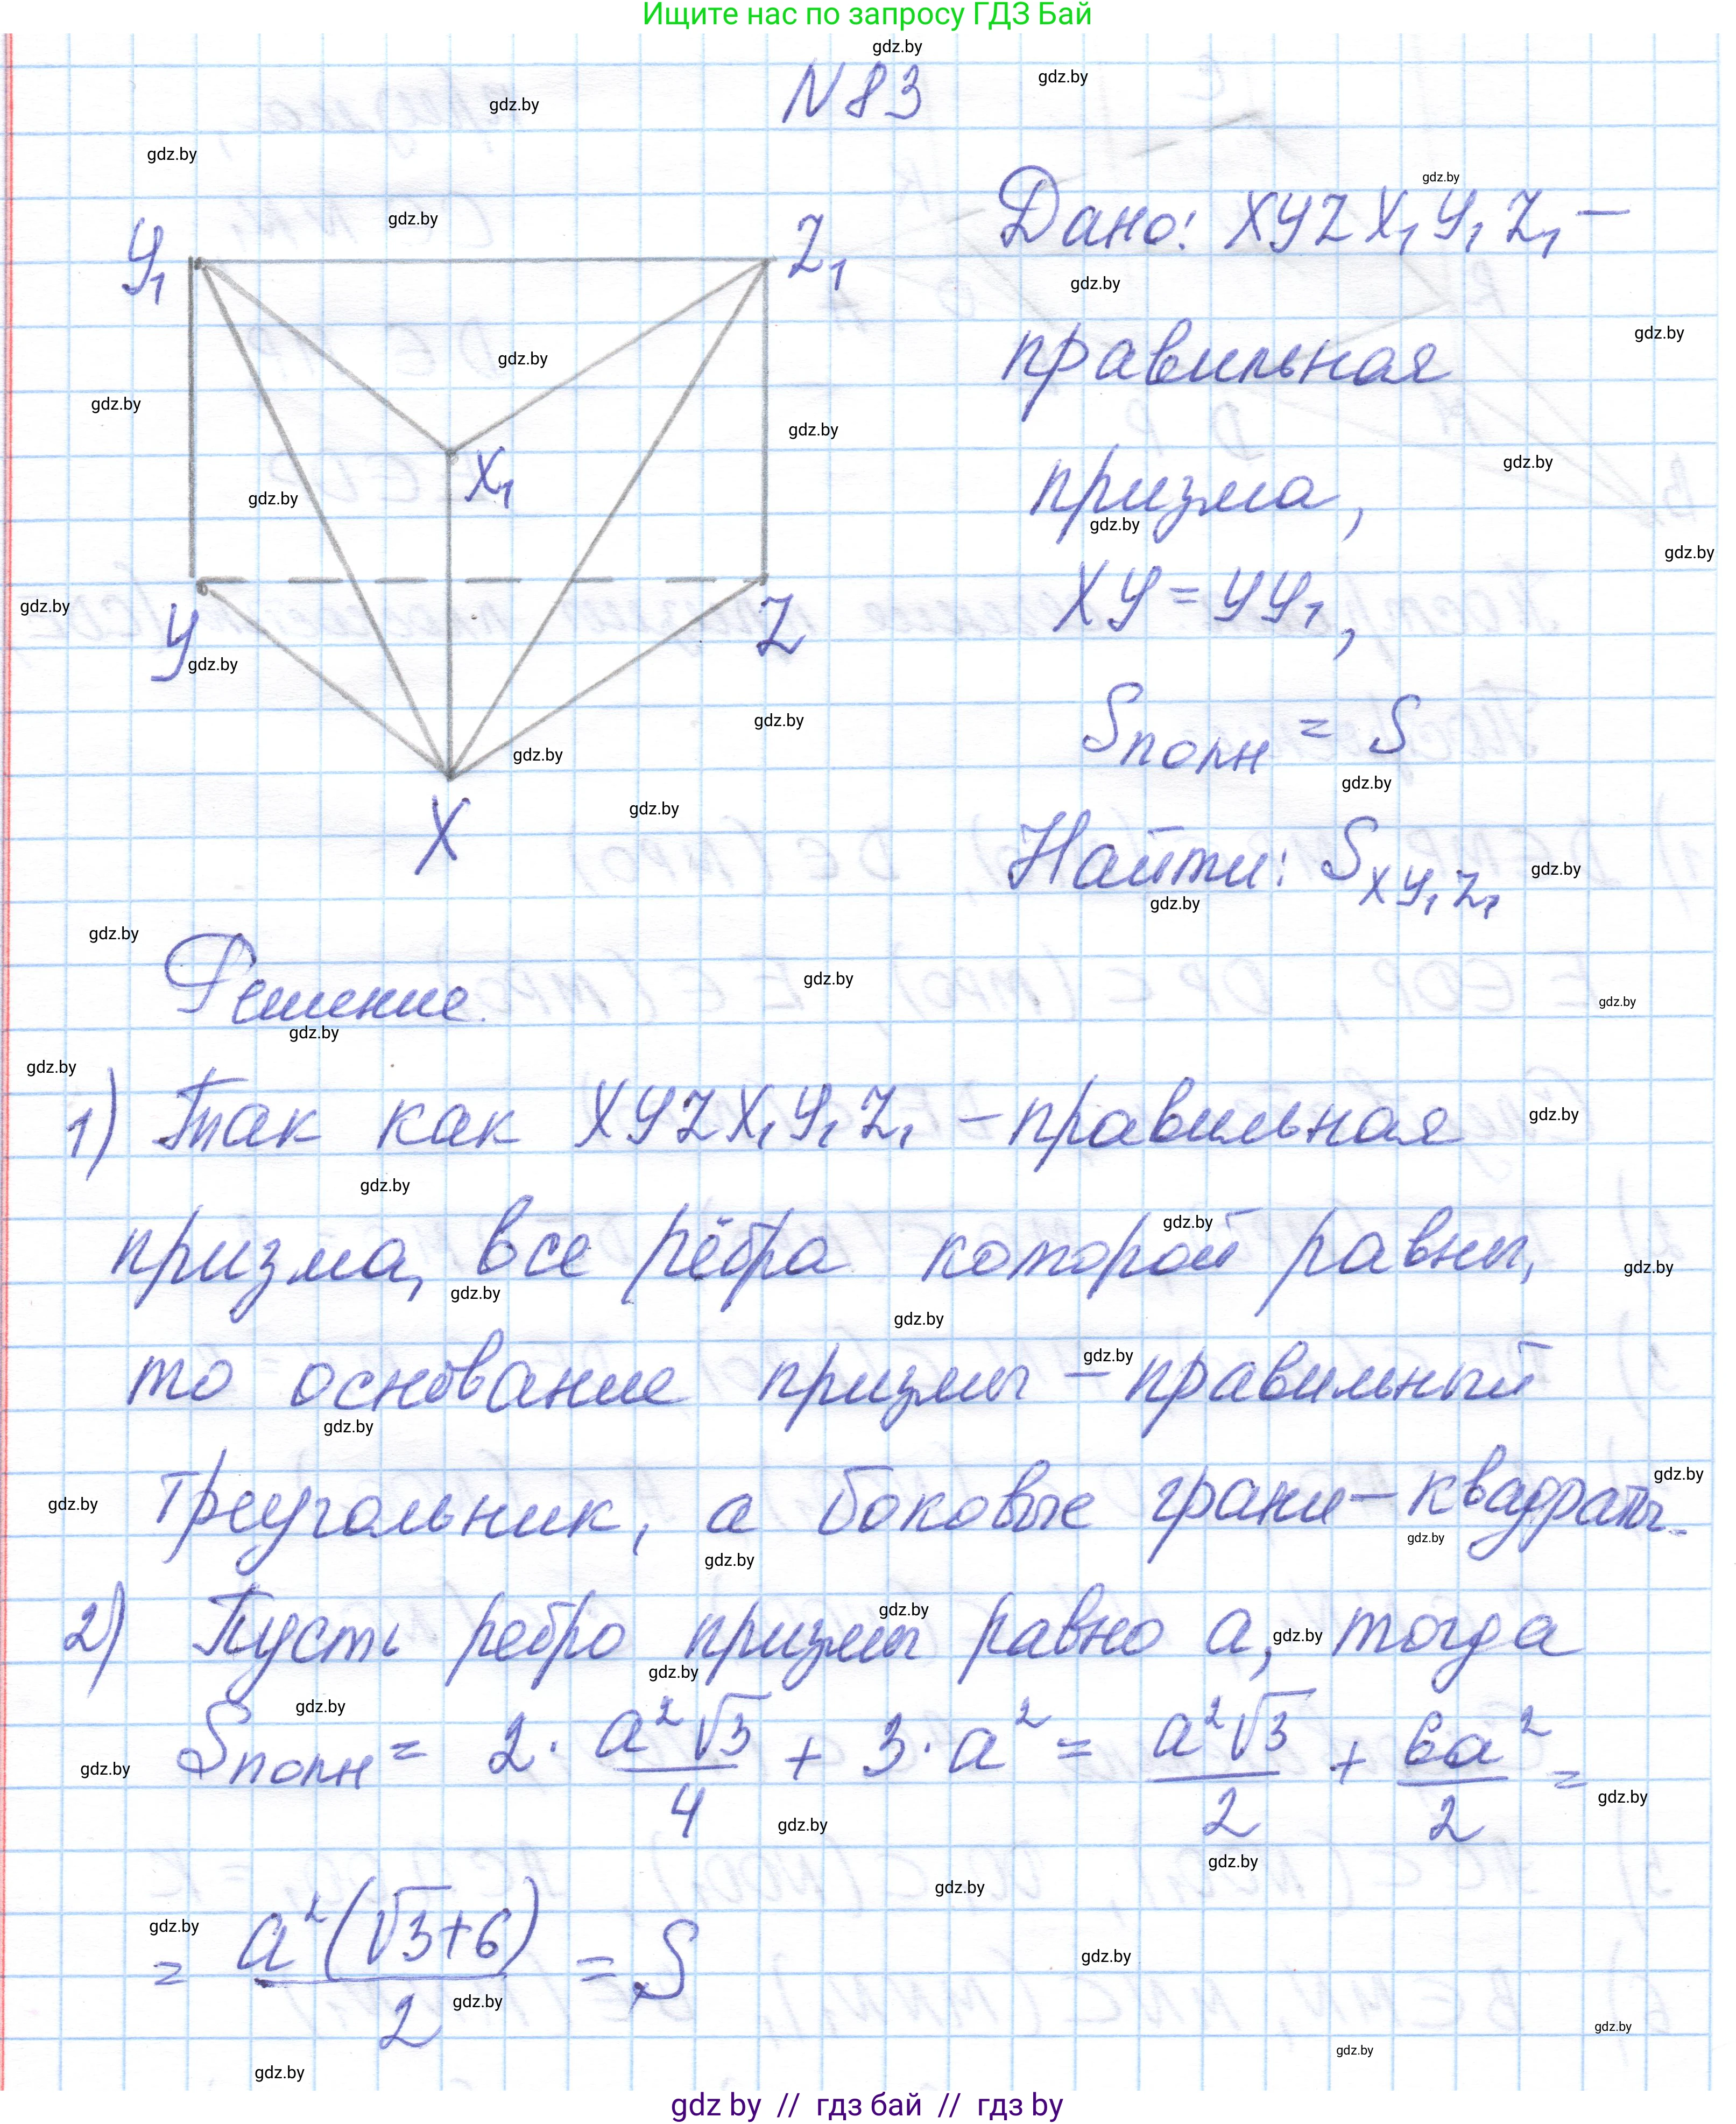 Ищите нас по запросу ГДЗ Бай
N83
Дано: XYZX₁Y₁Z₁ –
правильная
призма,
XY = YY₁,
Sполн = S
Найти: S_XY₁Z₁
Y₁
Z₁
X₁
Y
Z
X
Решение.
1) Так как XYZX₁Y₁Z₁ – правильная
призма, все рёбра которой равны,
то основание призмы – правильный
треугольник, а боковые грани – квадраты.
2) Пусть ребро призмы равно a, тогда
Sполн = 2 · a²√3/4 + 3 · a² = a²√3/2 + 6a²/2 =
= a²(√3+6)/2 = S
gdz by // гдз бай // гдз by